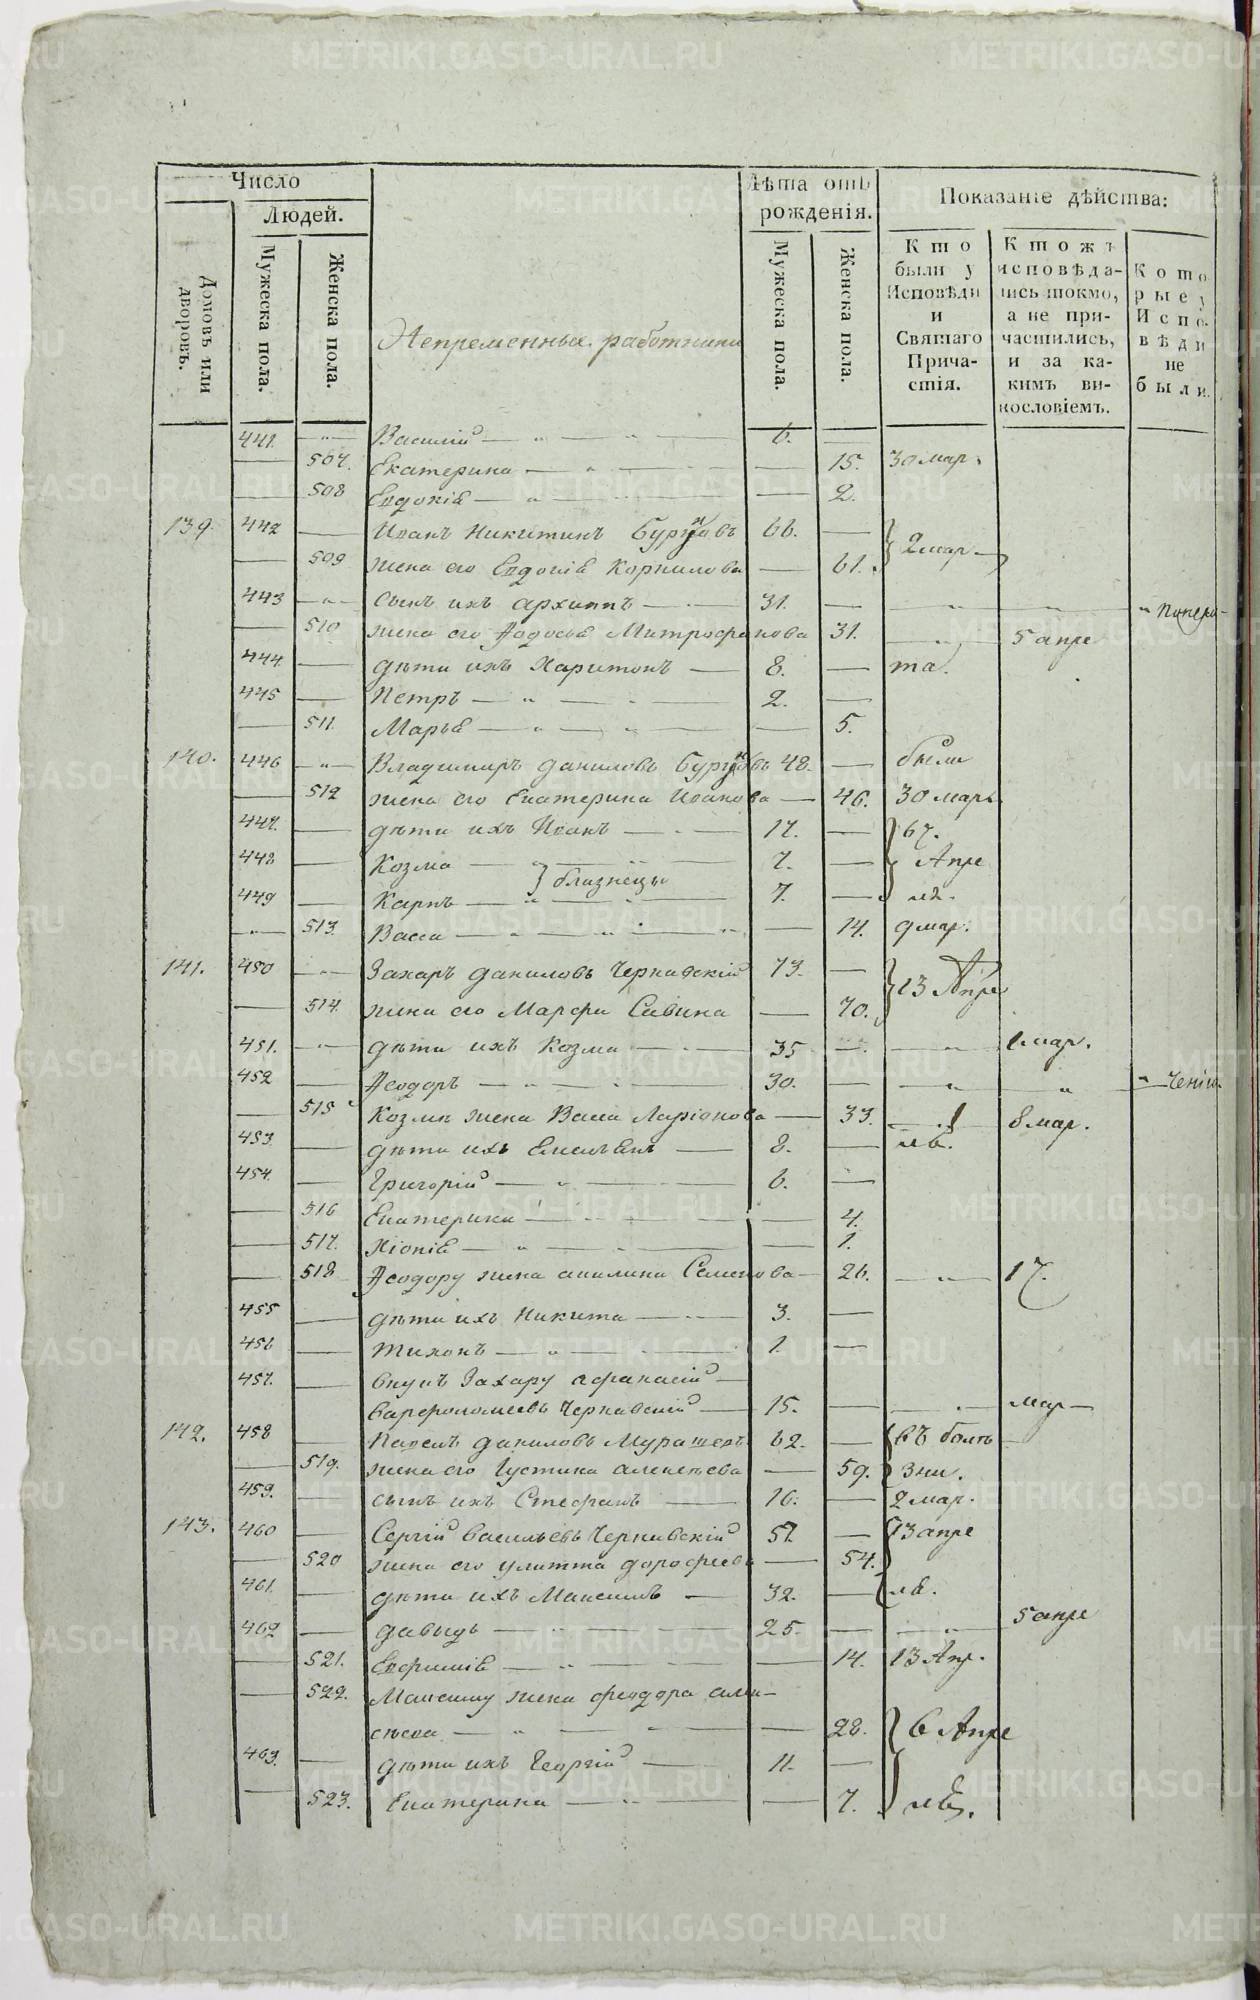 Число
Людей.
Домовъ или дворовъ.
Мужеска пола.
Женска пола.
Непременные работники
Лѣта отъ рожденія.
Мужеска пола.
Женска пола.
Показаніе дѣйства:
Кто были у Исповѣди и Святаго Причастія.
Ктожъ исповѣдались токмо, а не причастились, и за какимъ винословіемъ.
Которые у Исповѣди не были.
441. Василій 6.
507. Екатерина 15. 30 мар.
508 Евдокіѣ 2.
139. 442 Иванъ Никитинъ 66. 2 мар
509 жена его Евдокіѣ Корнилова 61.
443 сынъ ихъ архиппъ 31.
510 жена его Ѳедосьѣ Митрофанова 31. 5 апре
444. дѣти ихъ Харитонъ 8. та.
445 Петръ 2.
511. Марьѣ 5.
140. 446 Владимиръ даниловъ 48. были
512 жена его Екатерина Иванова 46. 30 марь
447. дѣти ихъ Иванъ 17. 67.
448 Козма 7. Апре
близнецы
449 Карпъ 7. лѣ.
513. Васса 14. 9 мар.
141. 450 Захаръ даниловъ Чернавскій 73. 13 Апре
514. жена его Марфа Савина 70.
451. дѣти ихъ Козма 35 мар.
452 Ѳеодоръ 30.
515 Козмѣ жена Васса Ларіонова 33. 8 мар.
453. дѣти ихъ Емельѣнъ 8. лѣ.
454. Григорій 6.
516 Екатерина 4.
517. Хіоніѣ 1.
518 Ѳеодору жена акилина Семенова 26. 17.
455 дѣти ихъ Никита 3.
456 тихонъ 1.
457. внукъ Захару афанасій
варфоломеевъ Чернавскій 15. мар
142. 458 Павелъ даниловъ 62. въ болѣ
519. жена его Густина алексѣева 59. зни.
459. сынъ ихъ Стефанъ 16. 2 мар.
143. 460 Сергій васильевъ Чернавскій 57. 13 апре
520 жена его улитта дорофеева 54.
461. дѣти ихъ Максимъ 32. лѣ.
462 давыдъ 25. 5 апре
521. Евфиміѣ 14. 13 Апр.
522. Максиму жена феодора алек-
сѣева 28. 6 Апре
463. дѣти ихъ Георгій 11.
523. Екатерина 7. лѣ.
METRIKI.GASO-URAL.RU